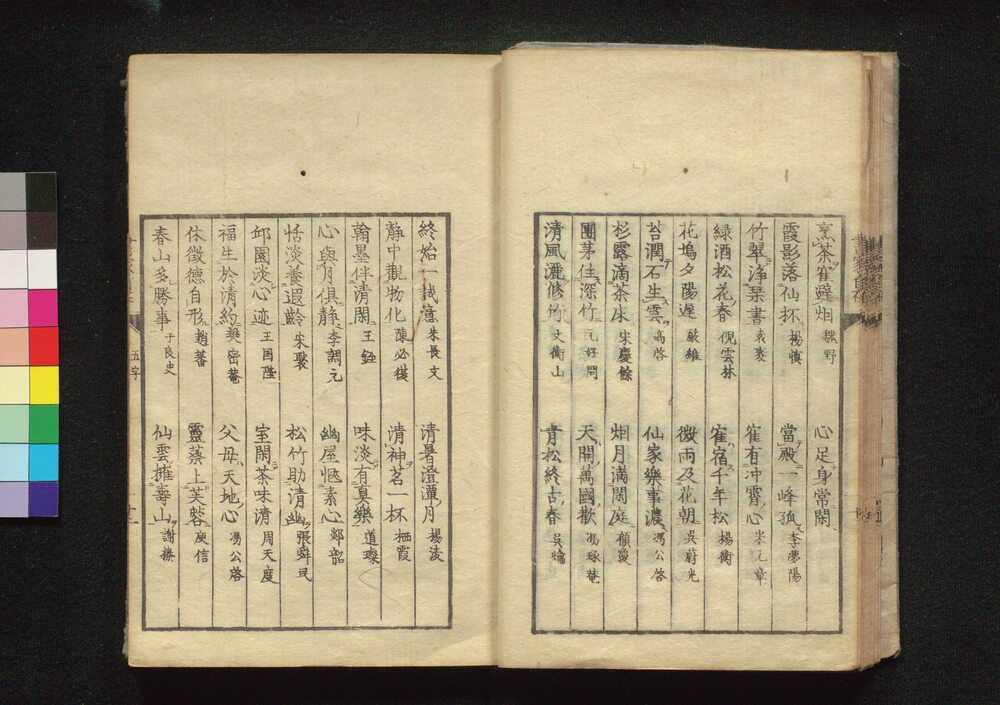 烹茶隺避烟 魏野 心足身常閑
霞影落仙杯 楊慎 當殿一峰孤 李夢陽
竹翠淨琹書 袁褧 隺有冲霄心 米元章
綠酒松花春 倪雲林 隺宿千年松 楊衡
花塢夕陽遲 嚴維 微雨及花朝 吳蔚光
苔潤石生雲 高啓 仙家樂事濃 馮公啓
杉露滴茶床 宋慶餘 烟月滿閑庭 顧夐
團茅住深竹 元好問 天開萬國歡 馮琢菴
清風灑修竹 文衡山 青松終古春 吳
終始一誠意 朱長文 清暑澄潭月 楊浚
靜中觀物化 陳必復 清神茗一杯 栖霞
翰墨伴清閑 王鏊 味淡有真樂 道璨
心與月俱靜 李調元 幽屋愜素心 鄭韶
恬淡養遐齡 宋褧 松竹助清幽 張舜民
邱園淡心迹 王國陛 室閑茶味清 周天度
福生於清約 奭密菴 父母天地心 馮公啓
休徵德自形 趙蕃 靈葉上芙蓉 庾信
春山多勝事 于良史 仙雲擁壽山 謝榛
五字